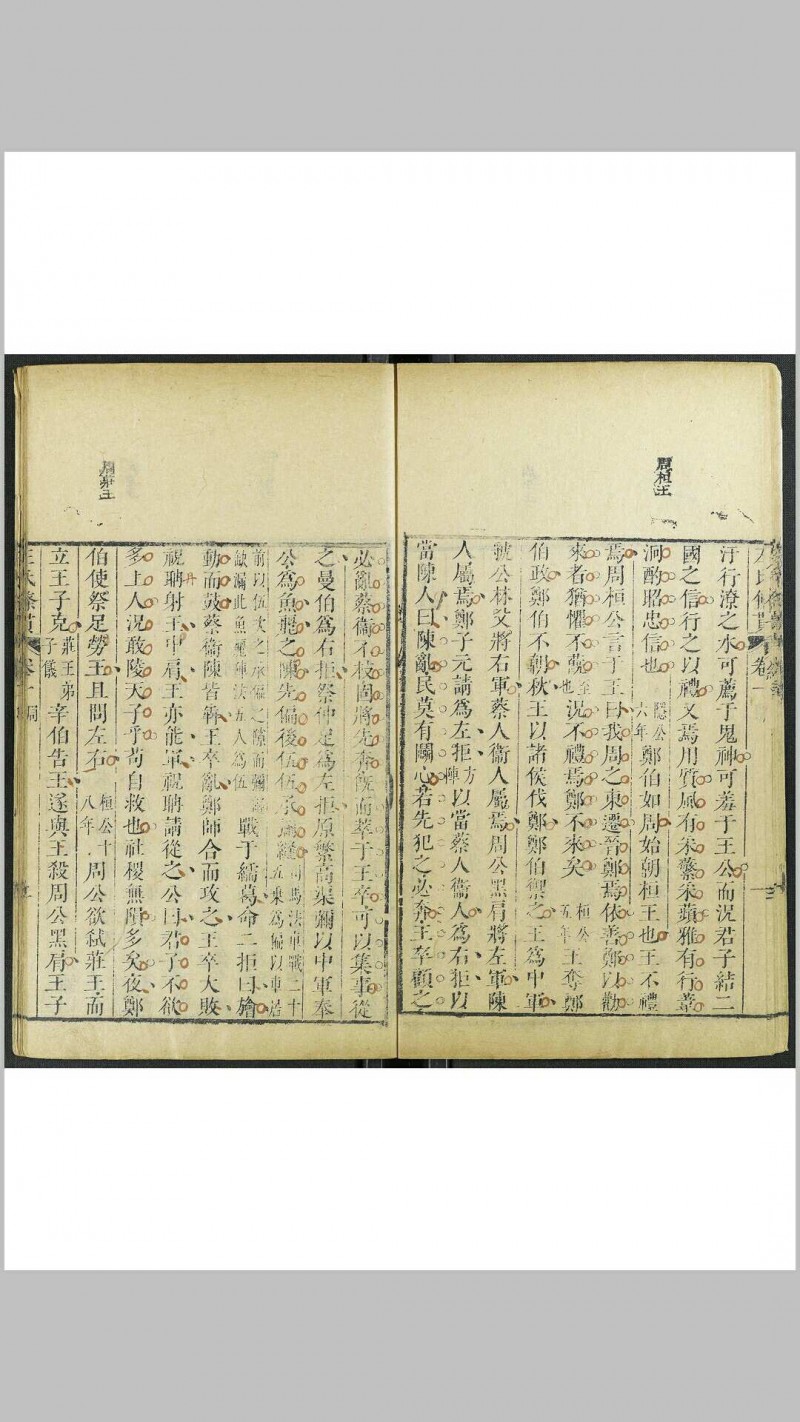 周桓王
汙行潦之水可薦于鬼神可羞于王公而況君子結二
國之信行之以禮又焉用質風有采蘩采蘋雅有行葦
泂酌昭忠信也 隱公六年 鄭伯如周始朝桓王也王不禮
焉周桓公言于王曰我周之東遷晉鄭焉依善鄭以勸
來者猶懼不蔇 至也 況不禮焉鄭不來矣 桓公五年 王奪鄭
伯政鄭伯不朝秋王以諸侯伐鄭鄭伯禦之王為中軍
虢公林父將右軍蔡人衞人屬焉周公黑肩將左軍陳
人屬焉鄭子元請為左拒 方陣 以當蔡人衞人為右拒以
當陳人曰陳亂民莫有鬬心若先犯之必奔王卒顧之
周莊王
必亂蔡衞不枝固將先奔旣而萃于王卒可以集事從
之曼伯為右拒祭仲足為左拒原繁高渠彌以中軍奉
公為魚麗之陳先偏後伍伍承彌縫 司馬法車戰二十五乘為偏以車居
前以伍次之承偏之隙而彌縫缺漏此魚麗陣法五人為伍 戰于繻葛命二拒曰旝
動而鼓蔡衞陳皆奔王卒亂鄭師合而攻之王卒大敗
祝聃射王中肩王亦能軍祝聃請從之公曰君子不欲
多上人況敢陵天子乎苟自救也社稷無隕多矣夜鄭
伯使祭足勞王且問左右 桓公十八年 周公欲弒莊王而
立王子克 莊王弟子儀 辛伯告王遂與王殺周公黑肩王子
左氏條貫 卷一 周